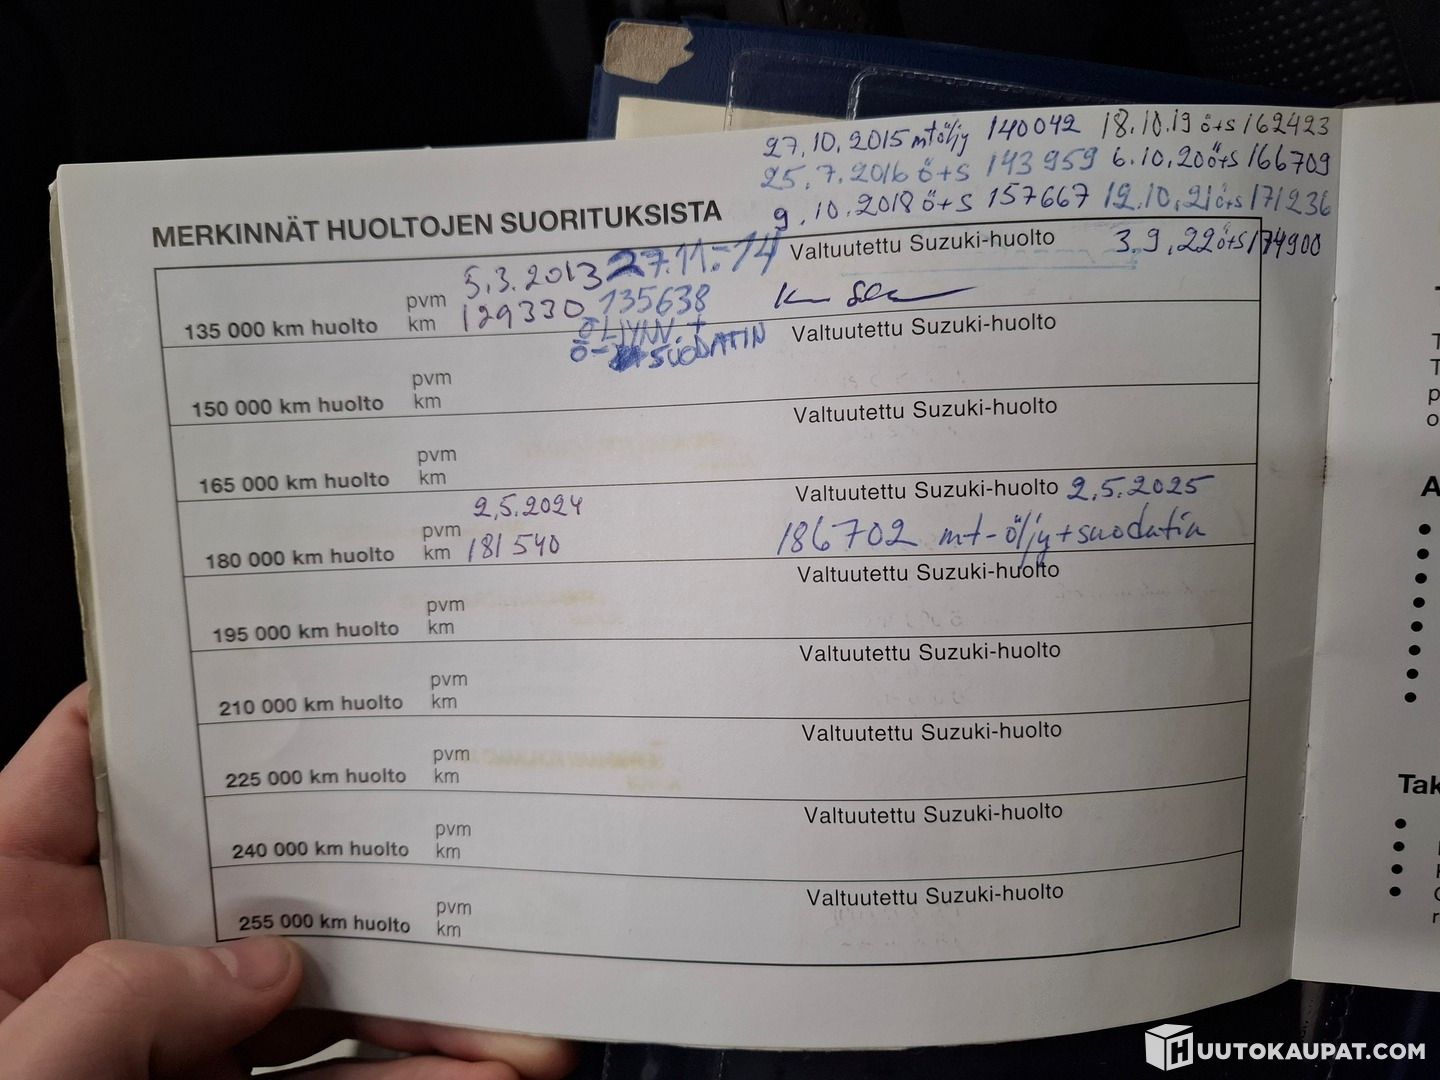 27.10.2015 mtöljy 140042 18.10.19 ö+s 162423
25.7.2016 ö+s 143959 6.10.20 ö+s 166709
9.10.2018 ö+s 157667 12.10.21 ö+s 171236
MERKINNÄT HUOLTOJEN SUORITUKSISTA
3.9.22 ö+s 174900
135 000 km huolto pvm 5.3.2013 27.11.-14 Valtuutettu Suzuki-huolto
km 129330 135638
ÖLJYNV. +
Ö- SUODATIN
150 000 km huolto pvm Valtuutettu Suzuki-huolto
km
165 000 km huolto pvm Valtuutettu Suzuki-huolto
km
180 000 km huolto pvm 2.5.2024 Valtuutettu Suzuki-huolto 2.5.2025
km 181540 186702 mt-öljy+suodatin
195 000 km huolto pvm Valtuutettu Suzuki-huolto
km
210 000 km huolto pvm Valtuutettu Suzuki-huolto
km
225 000 km huolto pvm Valtuutettu Suzuki-huolto
km
240 000 km huolto pvm Valtuutettu Suzuki-huolto
km
255 000 km huolto pvm Valtuutettu Suzuki-huolto
km
Tak
HUUTOKAUPAT.COM